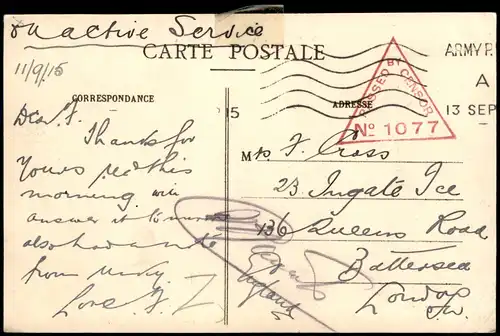 On Active Service
CARTE POSTALE
11/9/15
CORRESPONDANCE
ADRESSE
ARMY P.
A
13 SEP
15
PASSED BY CENSOR
No 1077
Dear F.
Thanks for
Yours rec'd this
morning will
answer it
also had a note
from
Love F.
Mrs F. Cross
23 Ingate Ice
136 Queens Road
Battersea
London
S.W.
England